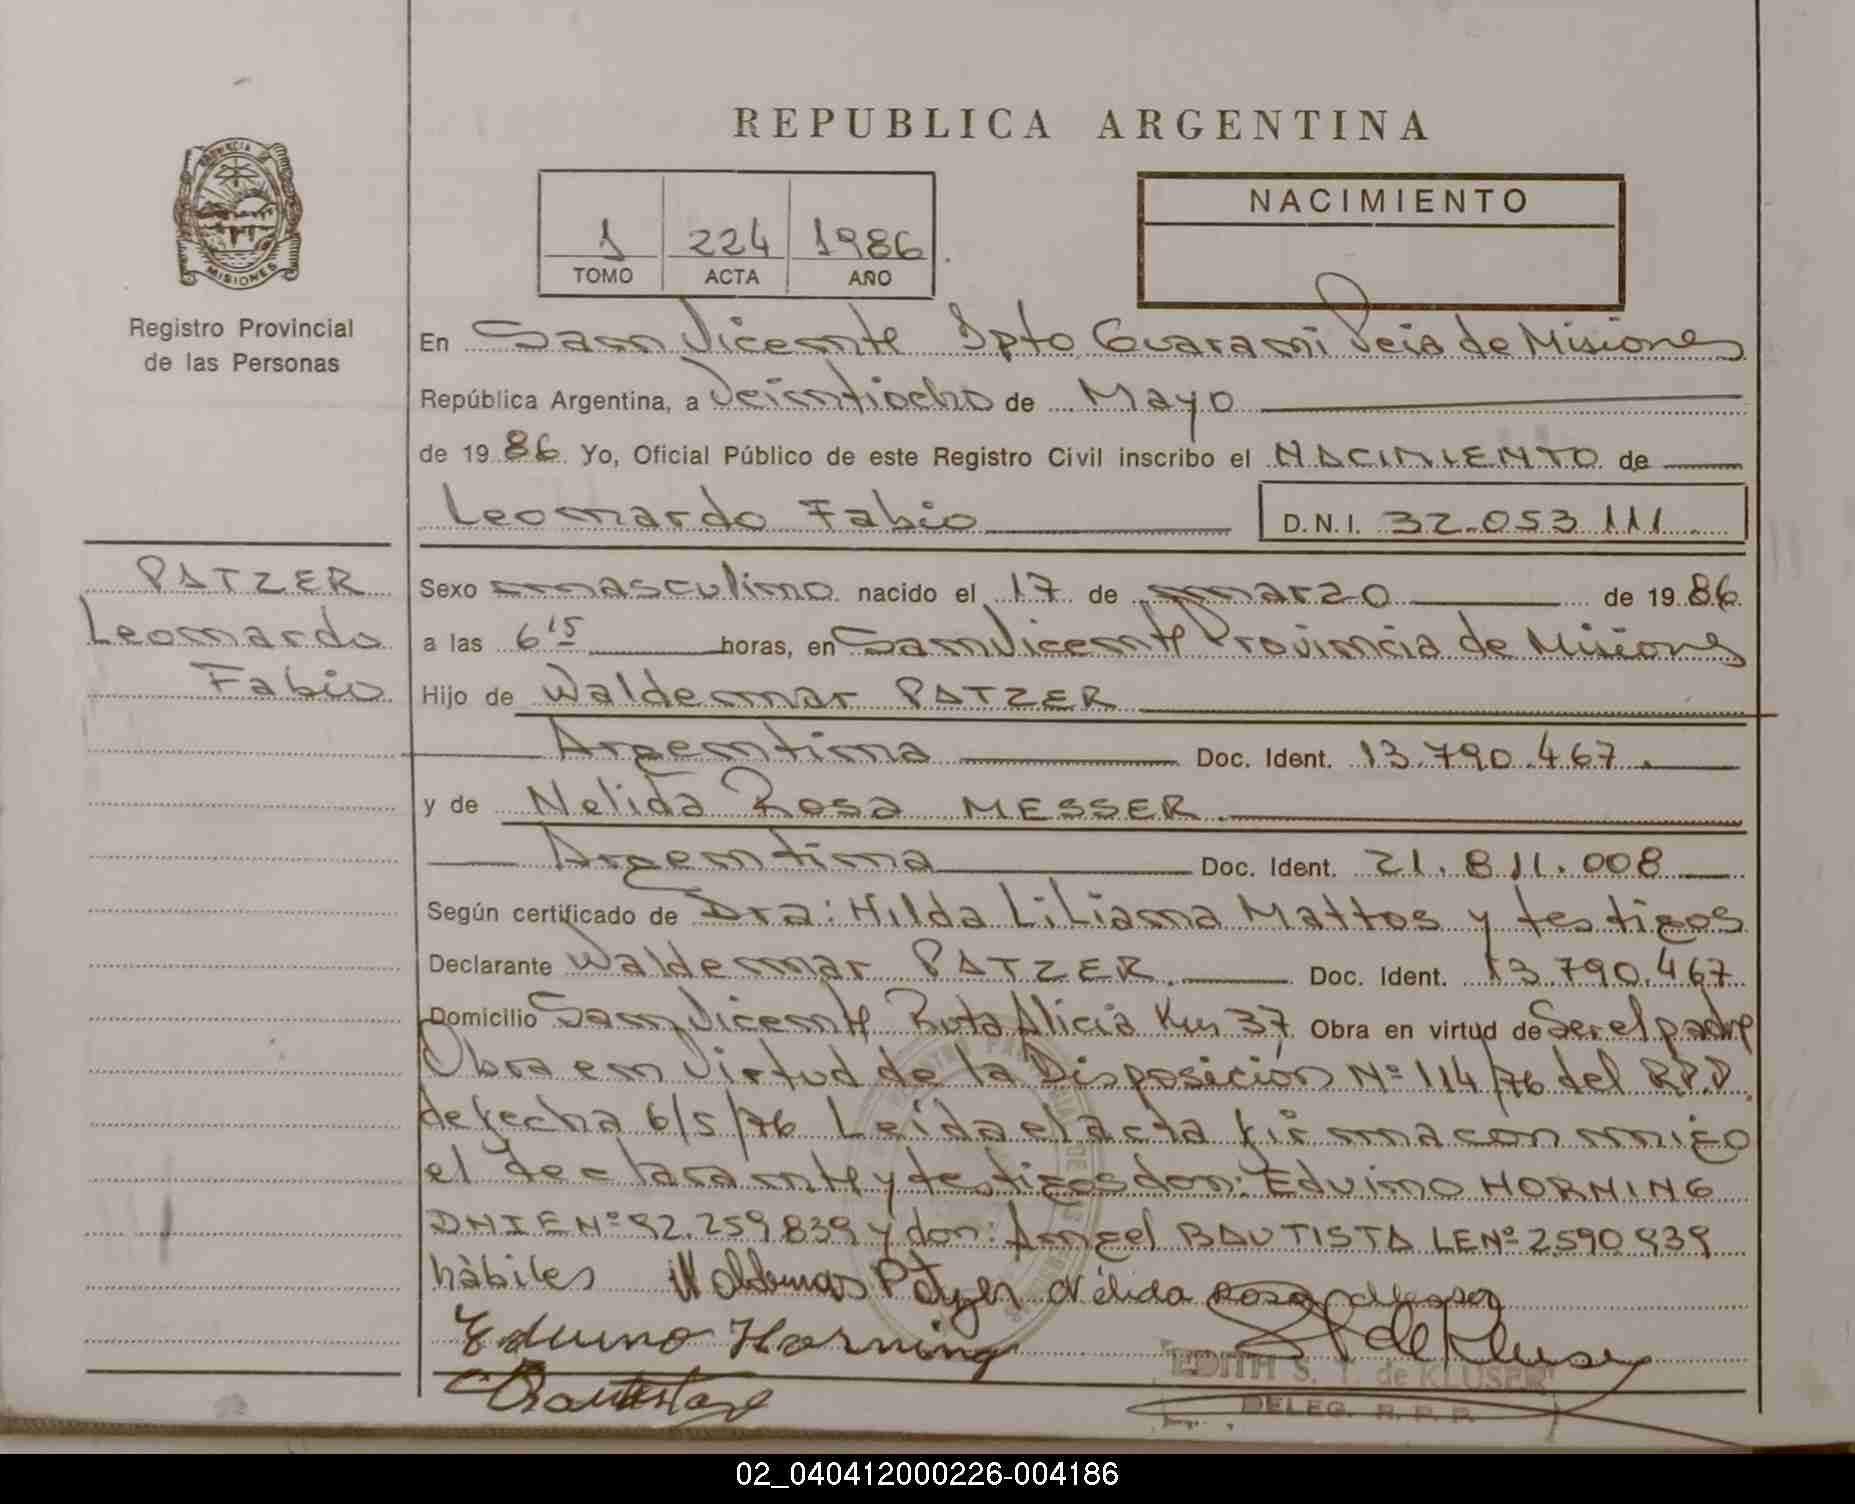 REPUBLICA ARGENTINA
PROVINCIA DE
MISIONES
Registro Provincial
de las Personas
1 224 1986
TOMO ACTA AÑO
NACIMIENTO
En San Vicente Dpto Guarani Pcia de Misiones
República Argentina, a Veintiocho de Mayo
de 1986 Yo, Oficial Público de este Registro Civil inscribo el NACIMIENTO de
Leonardo Fabio D.N.I. 32.053.111
PATZER
Leonardo
Fabio
Sexo masculino nacido el 17 de marzo de 1986
a las 6 15 horas, en San Vicente Provincia de Misiones
Hijo de Waldemar PATZER
Argentina Doc. Ident. 13.790.467
y de Nelida Rosa MESSER
Argentina Doc. Ident. 21.811.008
Según certificado de Dra: Hilda Liliana Mattos y testigos
Declarante Waldemar PATZER. Doc. Ident. 13.790.467
Domicilio San Vicente Ruta Alicia Km 37 Obra en virtud de Ser el padre
Obra en Virtud de la Disposición Nº 114/76 del R.P.P.
de fecha 6/5/76 Leida el acta firma con migo
el declarante y testigos don: Eduino HORNING
DNIE Nº 92.259.839 y don: Angel BAUTISTA LE Nº 2590939
hàbiles Waldemar Patzer Nélida Rosa Messer
Eduino Horning
EDITH S. T. de KLUSER
DELEG. R. P. P.
02_040412000226-004186